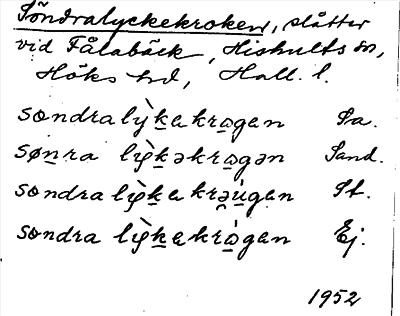 Söndralyckekroken, slåtter
vid Fålabäck, Hishults sn,
Höks hd, Hall. l.
søndralỳḵakro̲gan Sa.
søn̲ra lìɏḵəkro̲gən Sand.
søndralìɏḵakrə̯ú̲gan St.
søndra lìɏḵakrò̲gan Ej.
1952